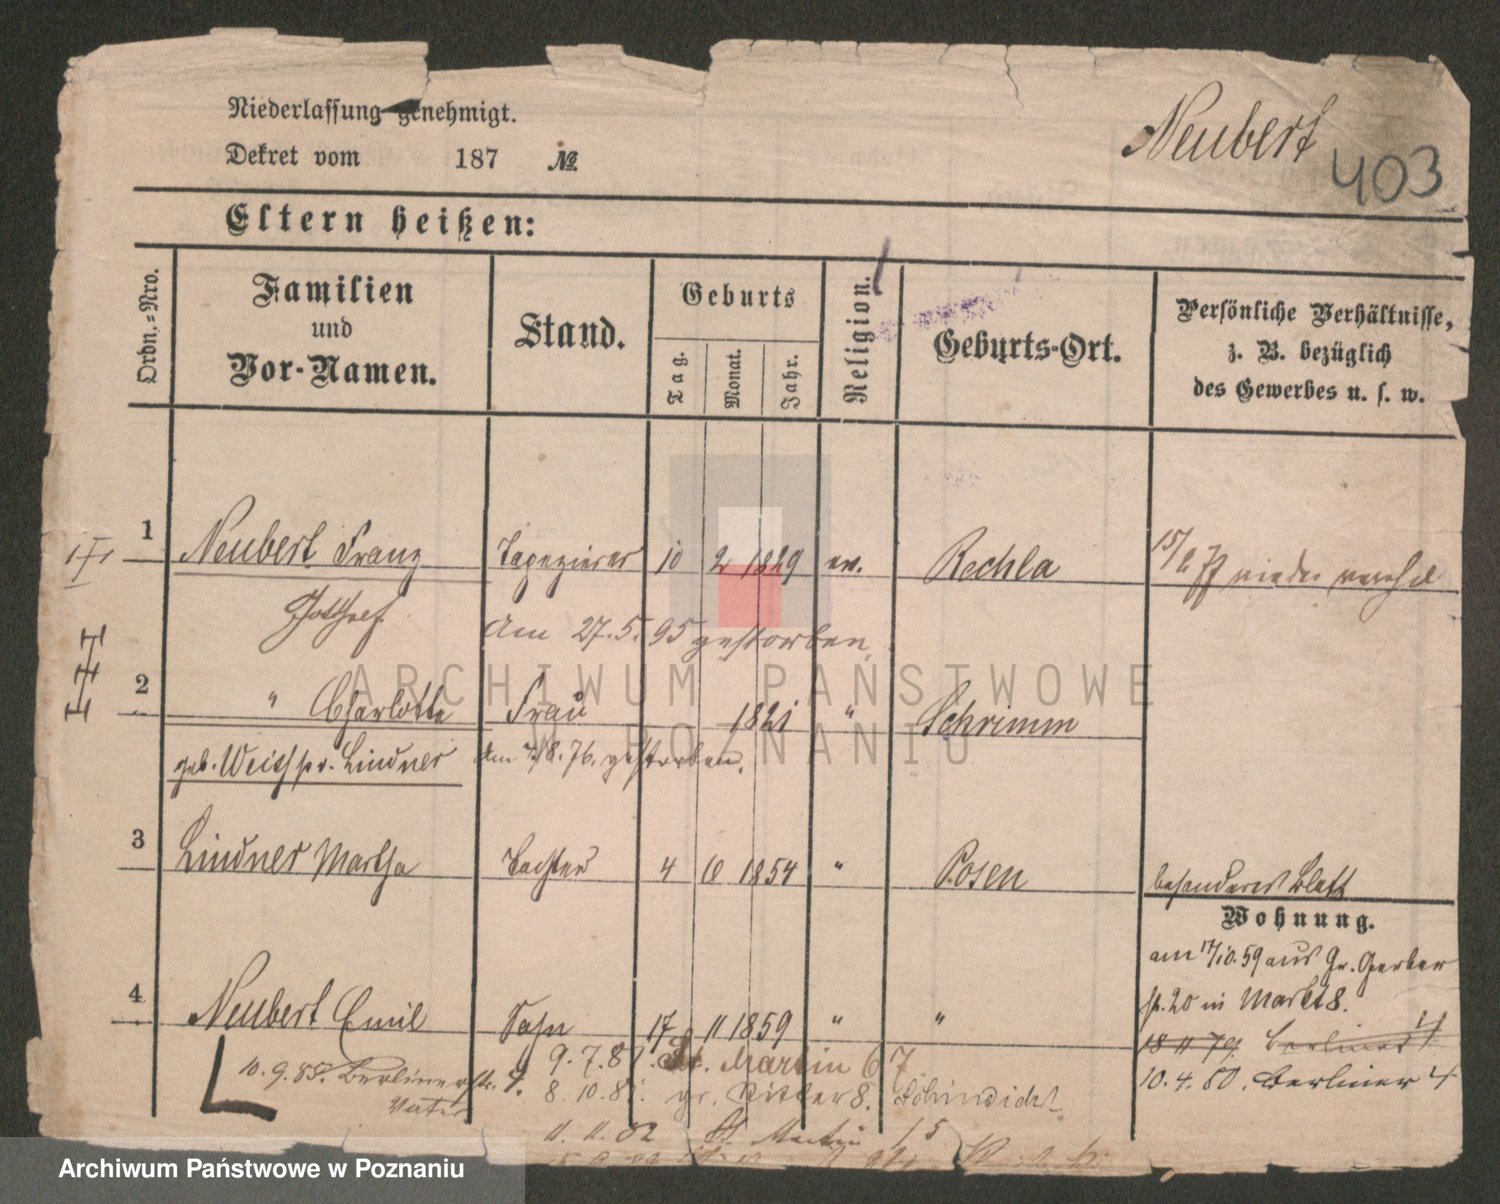 Niederlassung genehmigt.
Dekret vom 187 №
Neubert
403
Eltern heißen:
Ordn.-Nro.
Familien
und
Vor-Namen.
Stand.
Geburts
Tag.
Monat.
Jahr.
Religion.
Geburts-Ort.
Persönliche Verhältnisse,
z. B. bezüglich
des Gewerbes u. s. w.
1 Neubert Franz Tapezierer 10 2 1829 ev. Rechla
Gotthelf
Am 27.5.95 gestorben.
2 " Charlotte Frau 1821 " Schrimm
geb. Weiss v. Lindner
Am 4/8.76. gestorben.
3 Lindner Martha Tochter 4 10 1854 " Posen besonderes Blatt
Wohnung.
am 17/10.59 aus Gr. Gerber
st. 20 in Markt 8.
4 Neubert Emil Sohn 17 11 1859 " "
18 11 79. Berliner
10.4.80. Berliner 4
10.9.85. Berlinerstr. 4.
Vater
9.7.81. St. Martin 67
8.10.81. gr. Ritter 8.
11.11.82 St Martin
ARCHIWUM PAŃSTWOWE
W POZNANIU
Archiwum Państwowe w Poznaniu